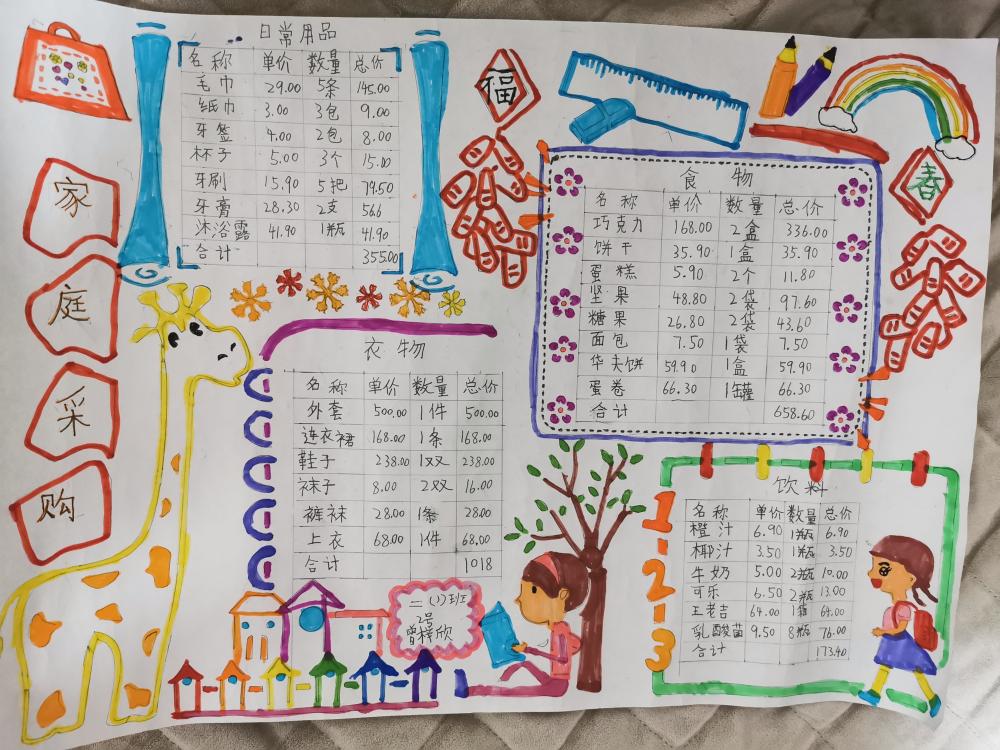 家
庭
采
购
日常用品
名称 单价 数量 总价
毛巾 29.00 5条 145.00
纸巾 3.00 3包 9.00
牙签 4.00 2包 8.00
杯子 5.00 3个 15.00
牙刷 15.90 5把 79.50
牙膏 28.30 2支 56.6
沐浴露 41.90 1瓶 41.90
合计 355.00
福
春
食物
名称 单价 数量 总价
巧克力 168.00 2盒 336.00
饼干 35.90 1盒 35.90
蛋糕 5.90 2个 11.80
坚果 48.80 2袋 97.60
糖果 26.80 2袋 43.60
面包 7.50 1袋 7.50
华夫饼 59.90 1盒 59.90
蛋卷 66.30 1罐 66.30
合计 658.60
衣物
名称 单价 数量 总价
外套 500.00 1件 500.00
连衣裙 168.00 1条 168.00
鞋子 238.00 1双 238.00
袜子 8.00 2双 16.00
裤袜 28.00 1条 28.00
上衣 68.00 1件 68.00
合计 1018
二(1)班
2号
曾梓欣
1
2
3
饮料
名称 单价 数量 总价
橙汁 6.90 1瓶 6.90
椰汁 3.50 1瓶 3.50
牛奶 5.00 2瓶 10.00
可乐 6.50 2瓶 13.00
王老吉 64.00 1箱 64.00
乳酸菌 9.50 8瓶 76.00
合计 173.40